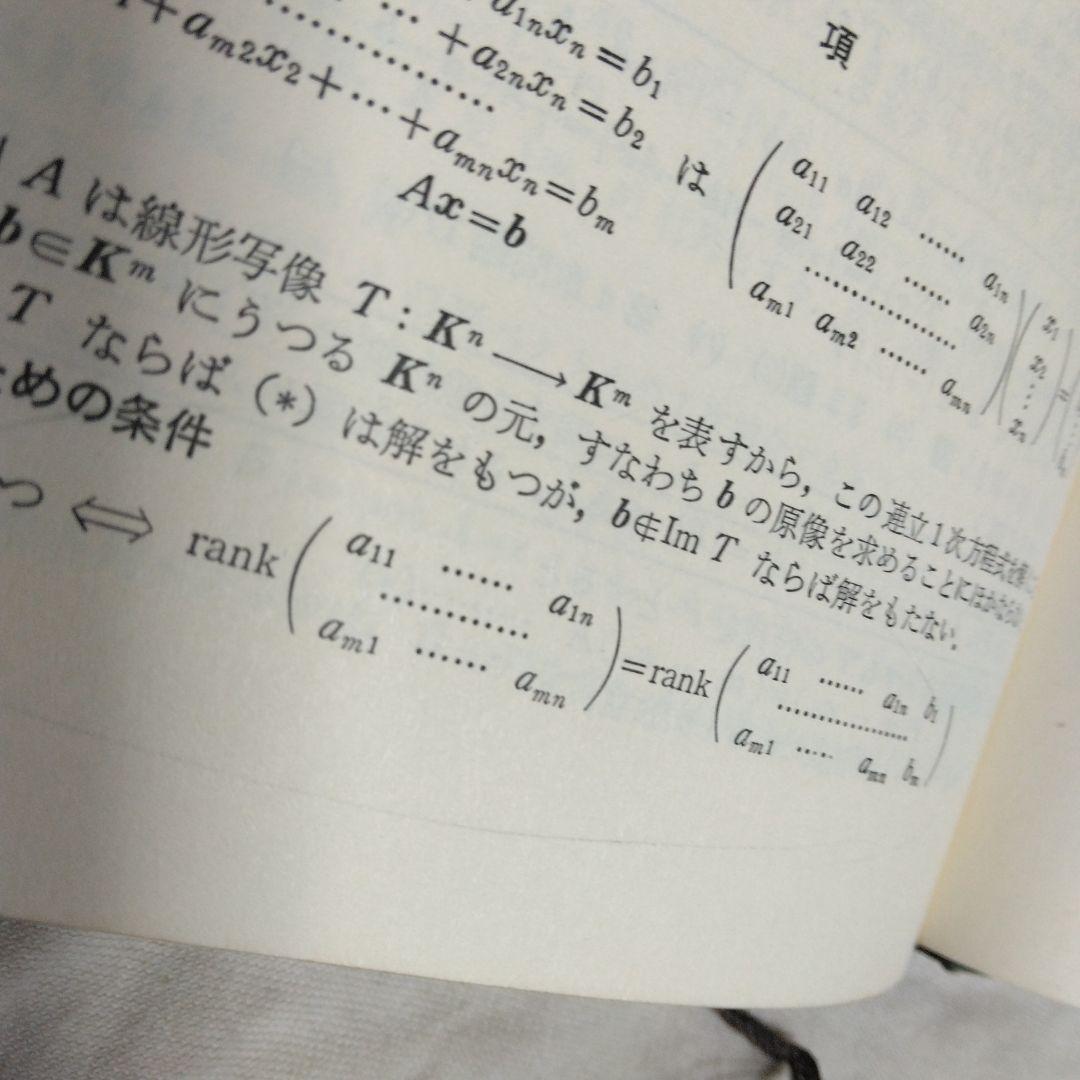 項
a₁ₙxₙ=b₁
… +a₂ₙxₙ=b₂
………………
+aₘ₂x₂+…+aₘₙxₙ=bₘ
は
( a₁₁ a₁₂ …… a₁ₙ ) ( x₁ )
a₂₁ a₂₂ …… a₂ₙ x₂
……………… ⋮
aₘ₁ aₘ₂ …… aₘₙ xₙ =
Ax=b
A は線形写像 T : Kⁿ ⟶ Kᵐ を表すから，この連立1次方程式を
b∈Kᵐ にうつる Kⁿ の元，すなわち b の原像を求めることにほかならない
T ならば (*) は解をもつが，b∉Im T ならば解をもたない．
ための条件
つ ⟺ rank( a₁₁ …… a₁ₙ ………… aₘ₁ …… aₘₙ )=rank( a₁₁ …… a₁ₙ b₁ ……………… aₘ₁ …… aₘₙ bₘ )